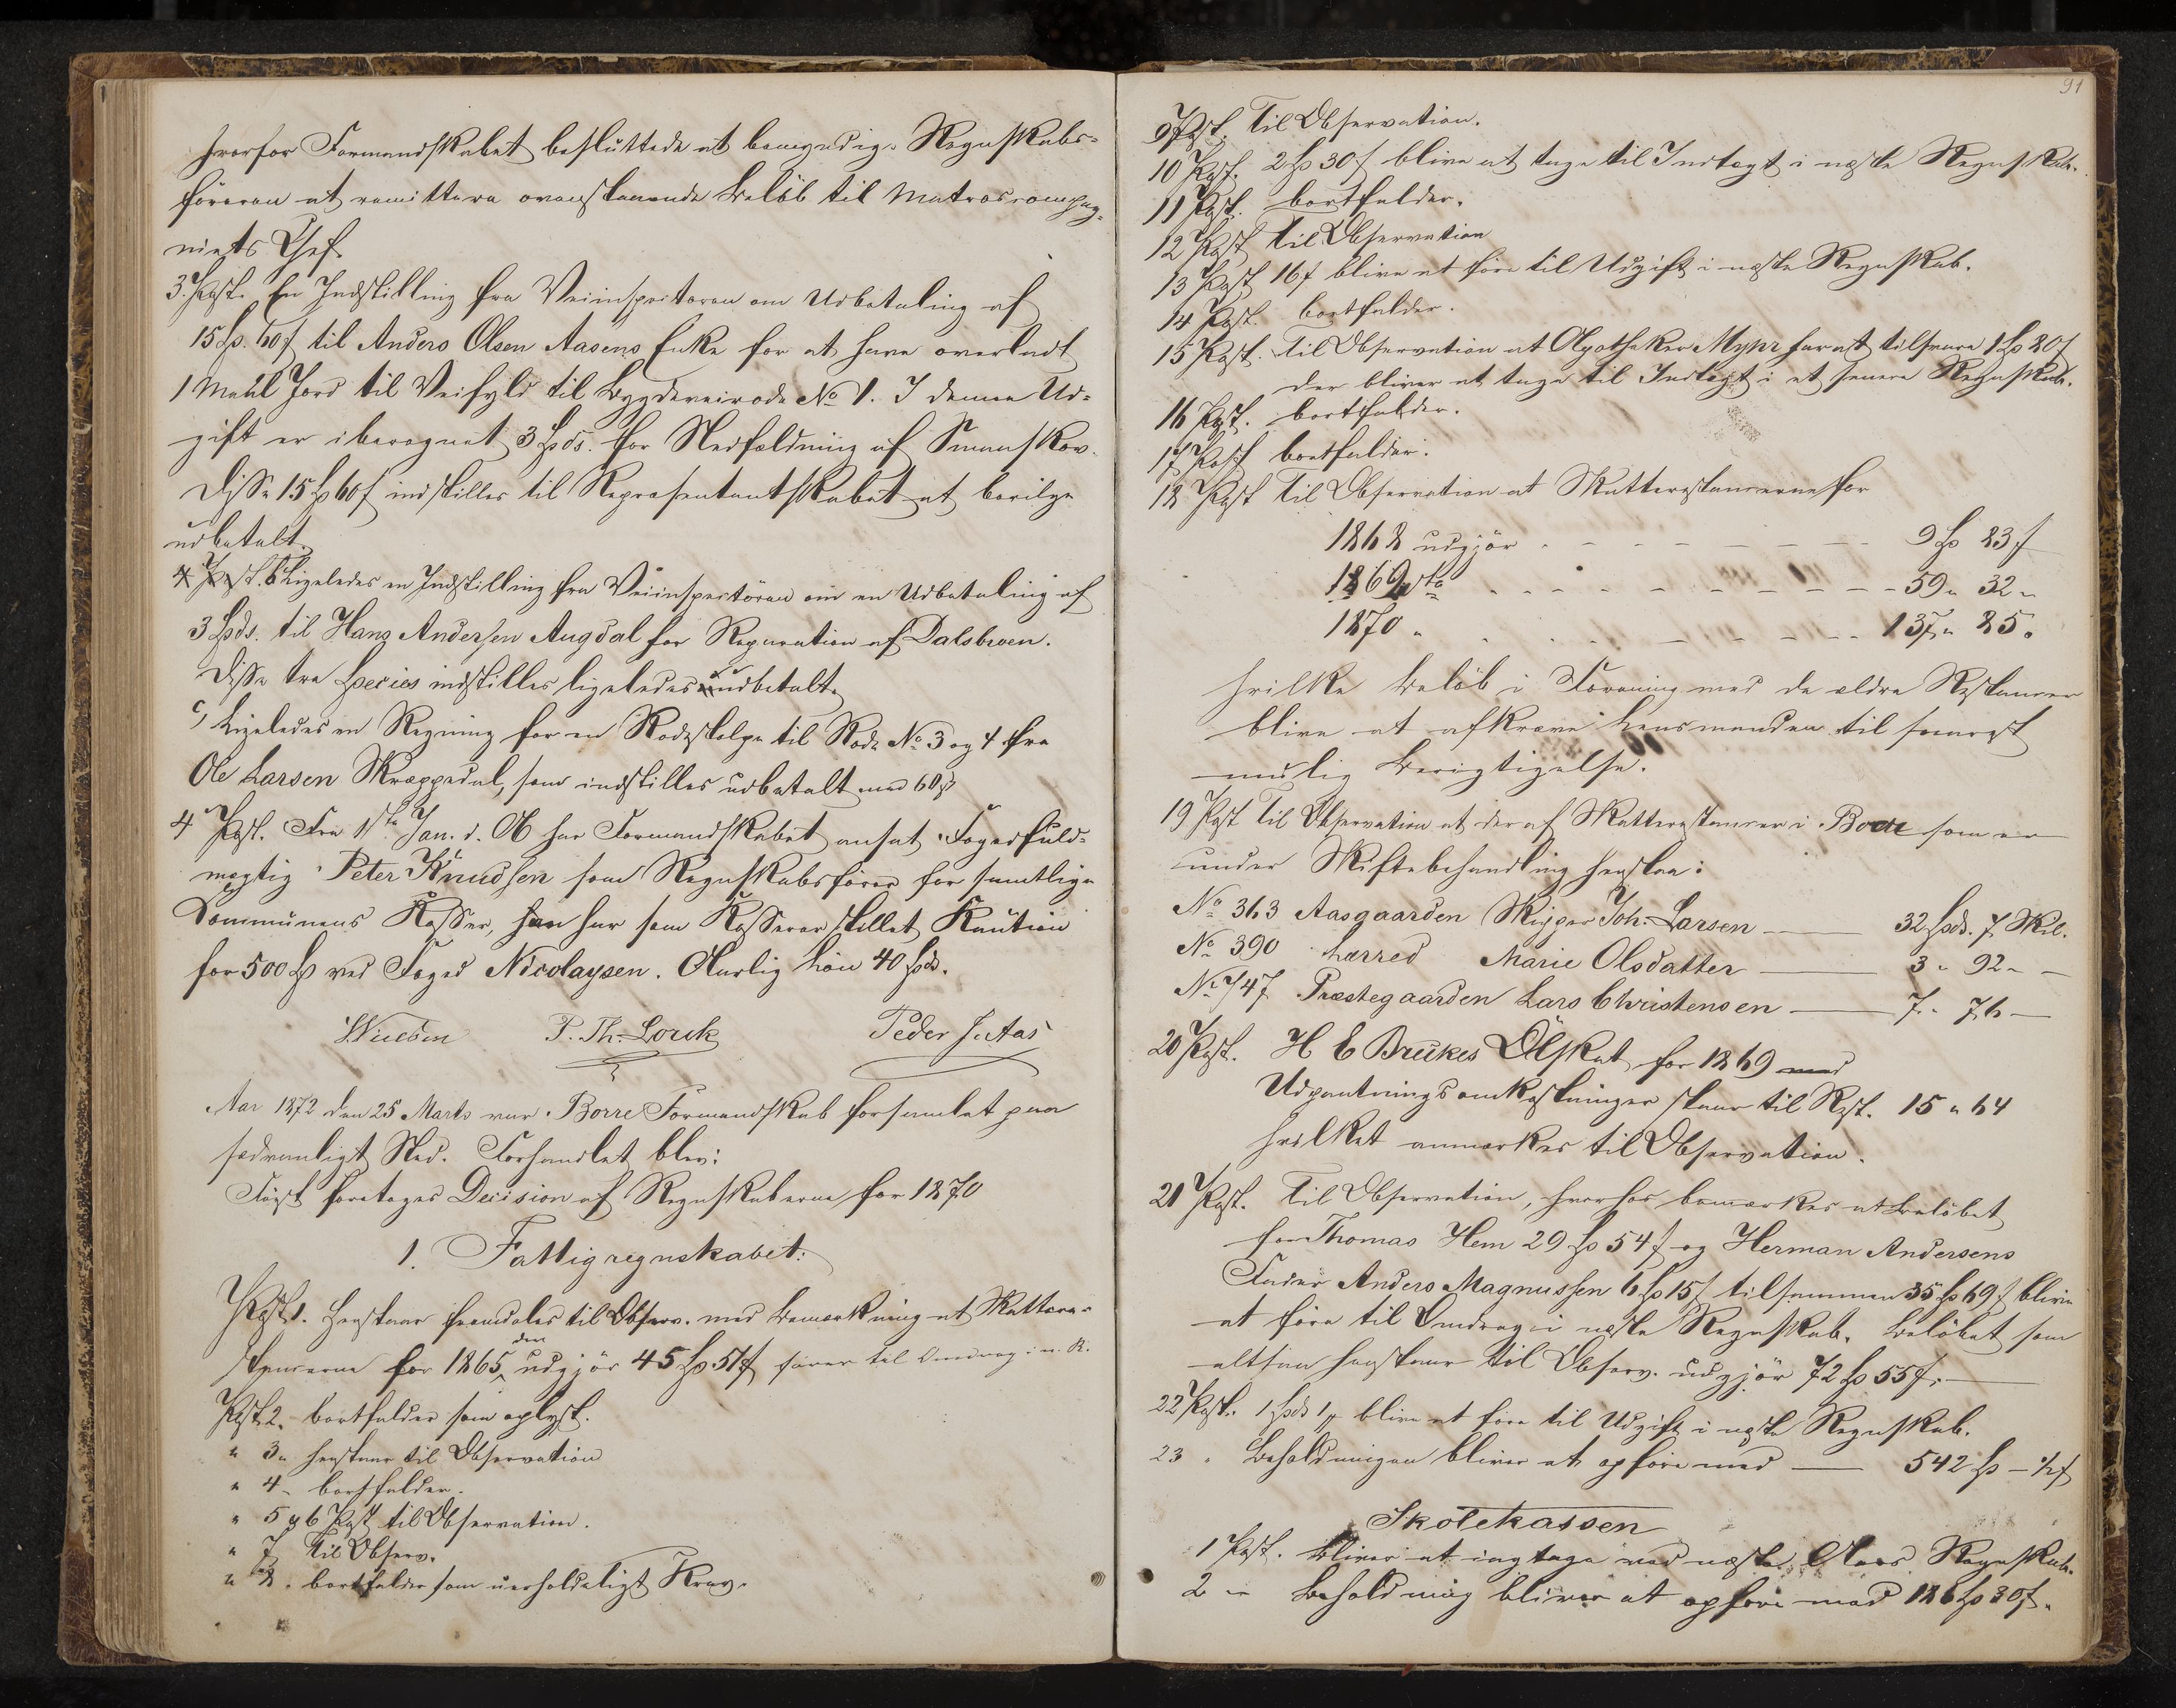 hvorfor Formandskabet besluttede at bemyndige Regnskabs-
føreren at remittere ovenstaaende Beløb til Matroscompag-
niets Chef.
3. Post. En Indstilling fra Veiinspectøren om Udbetaling af
15 Sp. 60 s til Anders Olsen Aasens Enke for at have overladt
1 Maal Jord til Veifyld til Bygdeveirode No 1. I denne Ud-
gift er iberegnet 3 Spds. for Nedfældning af Smaaskov.
Disse 15 Sp 60 s indstilles til Repræsentantskabet at bevilge
udbetalt.
4 Post. b Ligeledes en Indstilling fra Veiinspectøren om en Udbetaling af
3 Spds. til Hans Andersen Augdal for Reparation af Dalsbroen.
Disse tre Species indstilles ligeledes udbetalt.
c, Ligeledes en Regning for en Rodestolpe til Rode No 3 og 4 fra
Ole Larsen Skreppedal, som indstilles udbetalt med 60 s
4 Post. Fra 1ste Jan. d. A. har Formandskabet ansat Fogedfuld-
mægtig Peter Knudsen som Regnskabsfører for samtlige
Communens Kasser, han har som Kasserer stillet Kaution
for 500 Sp ved Foged Nicolaysen. Aarlig Løn 40 Spds.
P. Th. Lorck Peder J. Aas
Aar 1872 den 25 Marts var Borre Formandskab forsamlet paa
sædvanligt Sted. Forhandlet blev:
Først foretoges Decision af Regnskaberne for 1870
1. Fattigregnskabet:
Post 1. Henstaar fremdeles til Observ. med Bemærkning at Skattere-
stancerne for 1865, den udgjør 45 Sp 51 s fører til Omdrag i n. R.
Post 2. bortfalder som oplyst.
" 3 " henstaar til Observation
" 4 - bortfalder.
" 5 og 6 Post til Observation.
" 7 til Observ.
" 8 . bortfalder som uerholdeligt Krav.
91
9 Post. Til Observation.
10 Post. 2 Sp 30 s blive at tage til Indtægt i næste Regnskab.
11 Post. bortfalder.
12 Post Til Observation
13 Post 16 s blive at føre til Udgift i næste Regnskab.
14 Post. bortfalder.
15 Post. Til Observation at Apotheker Myhr har at tilsvare 1 Sp 80 s
der bliver at tage til Indtægt i et senere Regnskab.
16 Post. bortfalder.
17 Post bortfalder.
18 Post Til Observation at Skatterestancerne for
1868 udgjør - - - - - 9 Sp 83 s
1869 dto - - - - - 59 " 32 "
1870 " - - - - - 137 " 85 "
hvilke Beløb i Forening med de ældre Restancer
blive at afkræve Lensmanden til snarest
mulig Berigtigelse.
19 Post Til Observation at der af Skatterestancer i Boer som er
under Skiftebehandling henstaa:
No 363 Aasgaarden Skipper Joh. Larsen — 32 Spds. 7 Skil.
No 390 hærred Marie Olsdatter — 3 " 92 " —
No 747 Præstegaarden Lars Christensen — 7 " 76 —
20 Post. H E Brukes Ølskat for 1869 med
Udpantningsomkostninger staar til Rest. 15 " 64
hvilket anmærkes til Observation.
21 Post. Til Observation, hvorhos bemærkes at Beløbet
for Thomas Hem 29 Sp 54 s og Herman Andersens
Fader Anders Magnussen 6 Sp 15 s tilsammen 35 Sp 69 s blive
at føre til Omdrag i næste Regnskab. Beløbet som
altsaa henstaar til Observ. udgjør 72 Sp 55 s. —
22 Post. 1 Spds 1 s blive at føre til Udgift i næste Regnskab.
23 " Beholdningen bliver at opføre med — 542 Sp — ½ s
Skolekassen
1 Post. Bliver at indtage ved næste Aars Regnskab.
2 " Beholdning bliver at opføre med 186 Sp 30 s.